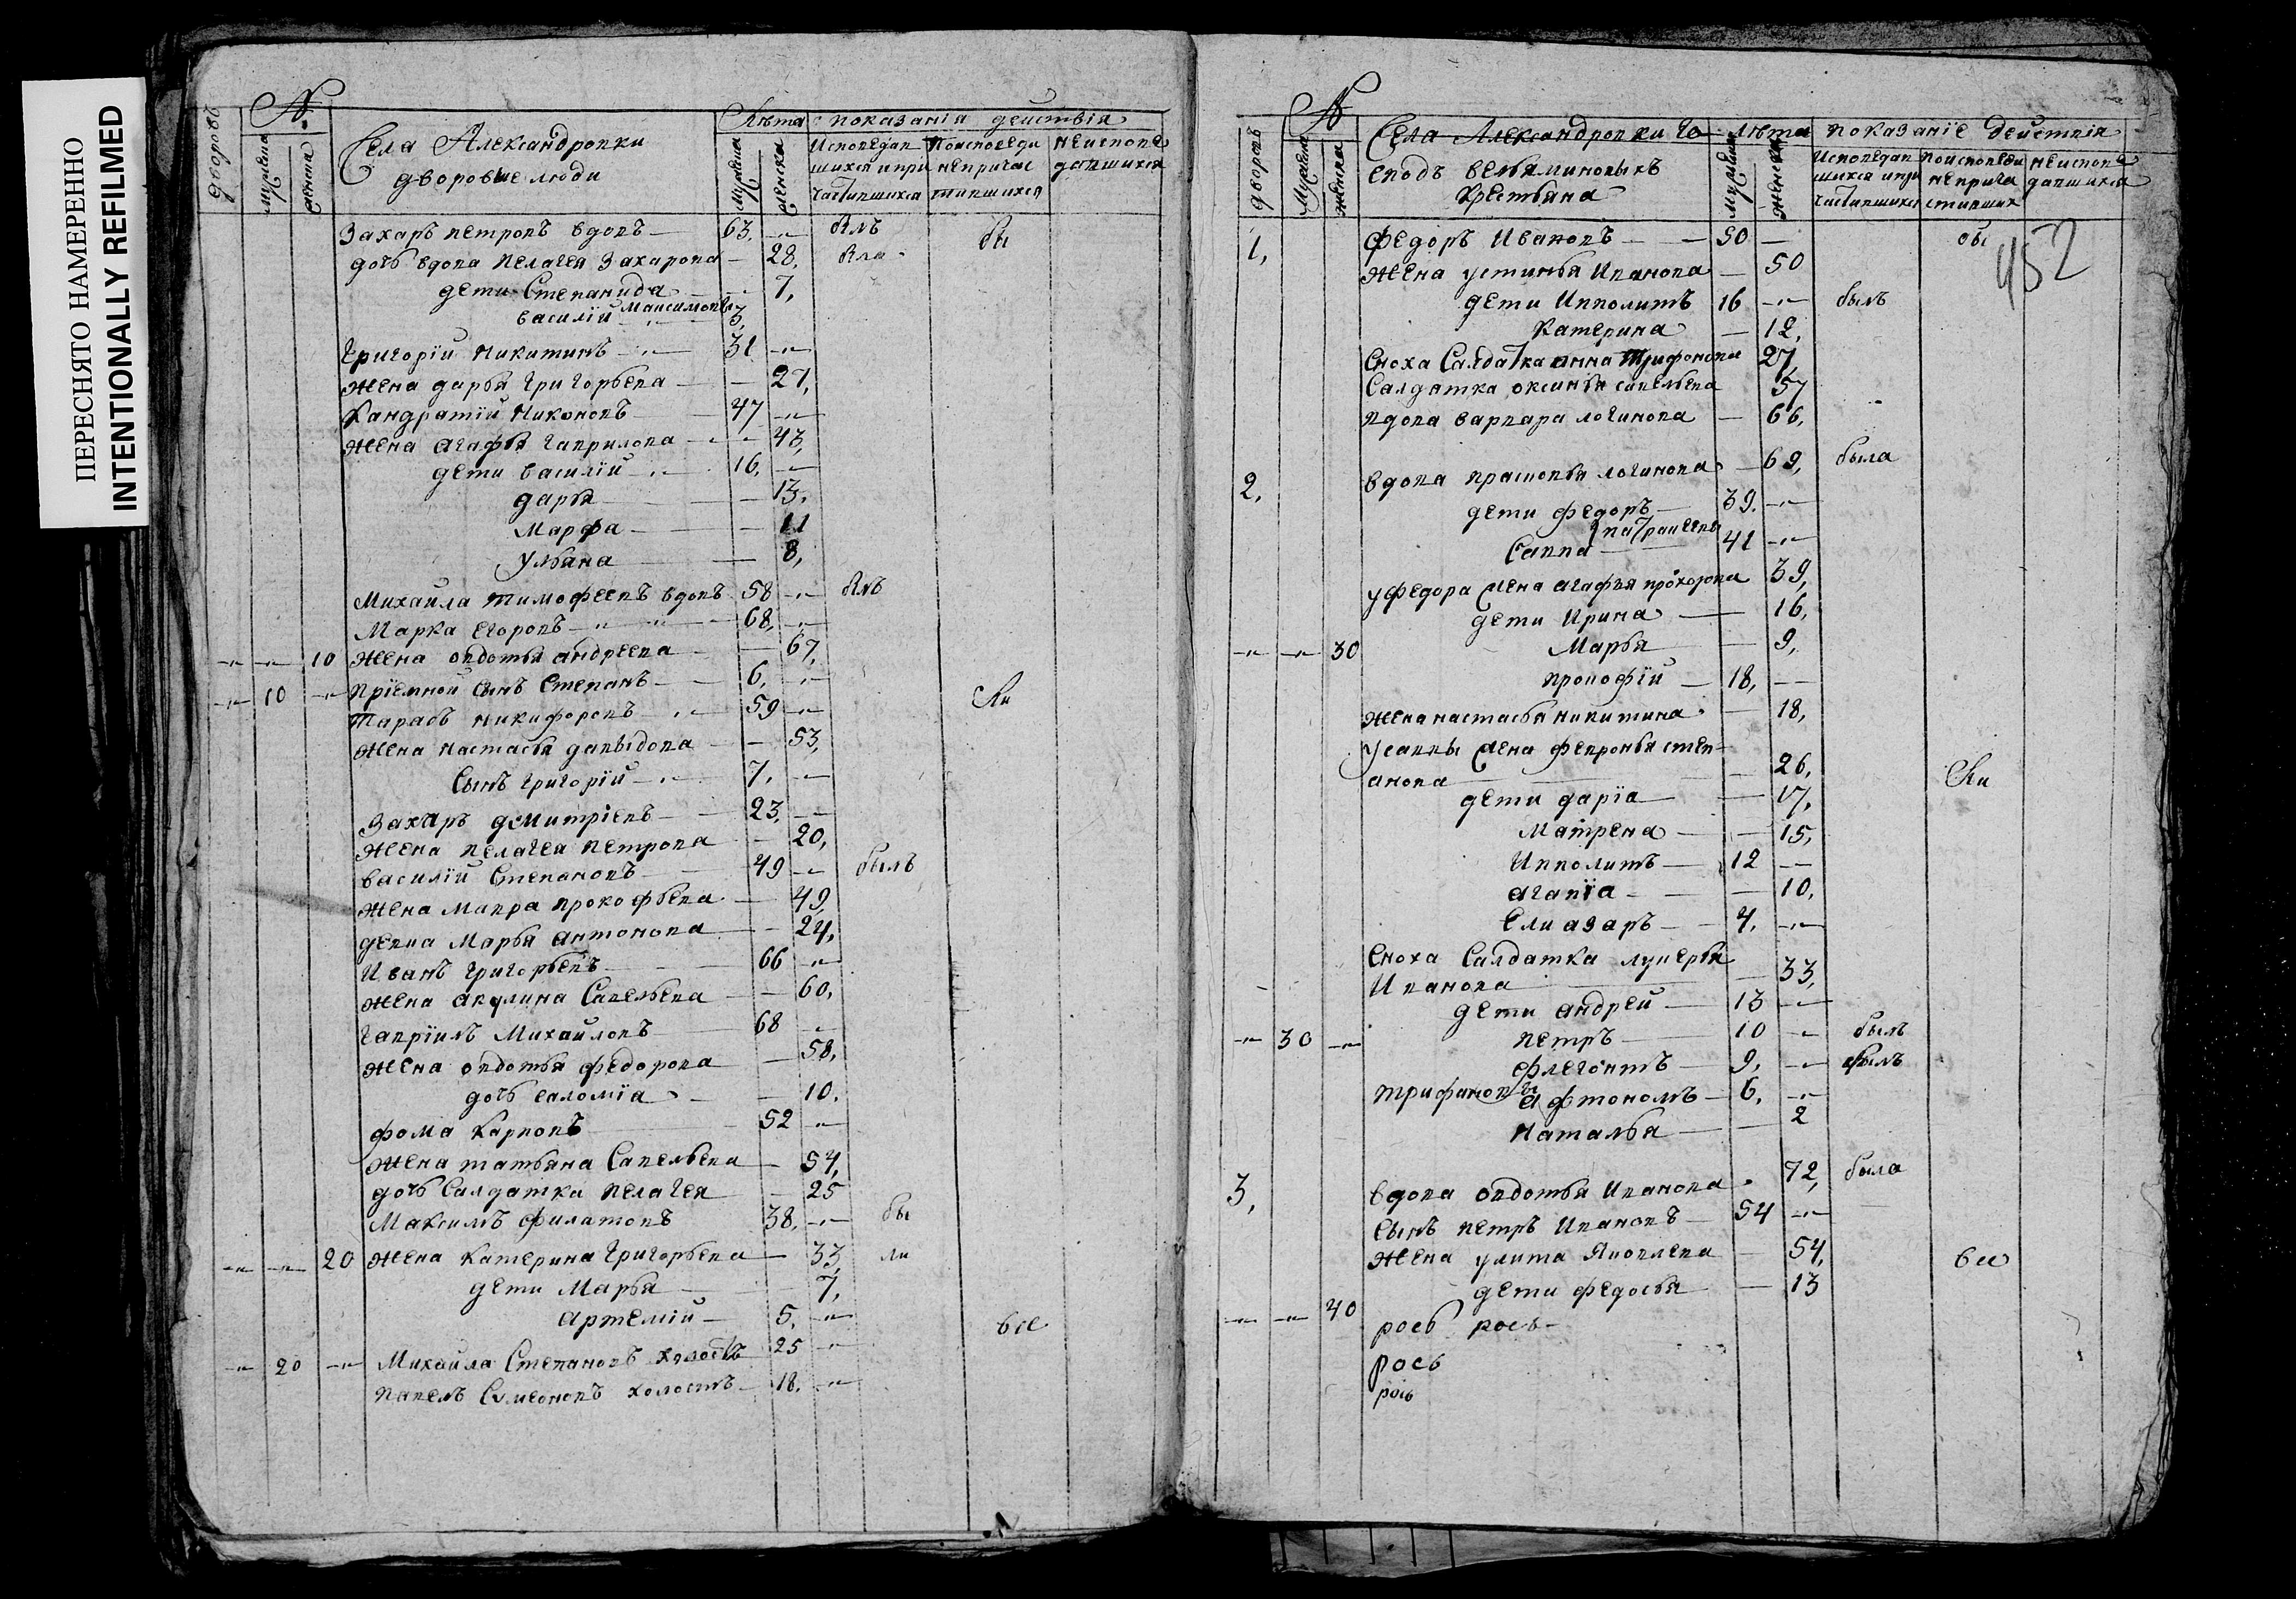 ПЕРЕСНЯТО НАМЕРЕННО
INTENTIONALLY REFILMED
дворовъ
№
мужеска
женска
Села Александровки
дворовые люди
Лѣта
мужеска
женска
показанія действія
Исповедав
шихся и при
частившихся
По исповеди
не причас
тившихся
Не испове
давшихся
Захаръ петровъ вдовъ 63. былъ бы
дочь вдова Пелагея Захарова 28, была
дети Степанида 7,
василий Максимовы 3,
Григорїй Никитинъ 31
жена дарья Григорьева 27,
Кандратїй Никоновъ 47
жена агафья гаврилова 43,
дети василїй 16,
дарья 13,
Марфа 11
Ульяна 8,
Михайла тимофеевъ вдовъ 58 былъ
Марка Егоровъ 68,
10 жена овдотья андреева 67,
10 прїемной сынъ Степанъ 6,
Тарасъ никифоровъ 59 ли
жена настасья давыдова 53,
Сынъ григорїй 7,
Захаръ дмитрїевъ 23,
жена пелагея петрова 20,
василїй Степановъ 49 былъ
жена мавра прокофьева 49,
девка Марья антонова 24,
Иванъ григорьевъ 66
жена акулина Савельева 60,
гаврїилъ Михайловъ 68
жена овдотья федорова 58,
дочь саломїа 10,
фома карповъ 52
жена татьяна Савельева 54,
дочь Салдатка пелагея 25
Максимъ филатовъ 38, бы
20 жена катерина григорьева 33, ли
дети Марья 7,
артемїй 5, все
20 Михайла Степановъ холостъ 25
павелъ Симеоновъ холостъ 18,
дворовъ
№
мужеска
женска
Села Александровки го
сподъ вельяминовыхъ
крестьяна
лѣта
мужеска
женска
показанїе действїя
Исповедав
шихся и при
частившихся
по исповеди
не прича
стивших
неиспове
давшихся
452
1, федоръ Ивановъ 50 бы
жена устинья Иванова 50
дети Ипполитъ 16 былъ
Катерина 12,
сноха Салдатка анна трифонова 27,
Салдатка оксинья савельева 57
вдова варвара логинова 66,
2, вдова прасковья логинова 69, была
дети федоръ 39,
Савва 41
у федора жена агафья прохорова 39,
дети Ирина 16,
30 Марья 9,
прокофїй 18,
жена настасья никитина 18,
у саввы жена февронья степ-
анова 26, ли
дети дарїа 17,
Матрена 15,
Ипполитъ 12
агапїа 10,
Елиазаръ 4,
сноха Салдатка лукерья
Иванова 33,
дети андрей 13
30 петръ 10 былъ
флегонтъ 9, былъ
трифановы афтономъ 6,
Наталья 2
3, вдова овдотья Иванова 72, была
сынъ петръ Ивановъ 54
жена улита Яковлева 54, все
дети федосья 13
40
рось рось
рось
рось